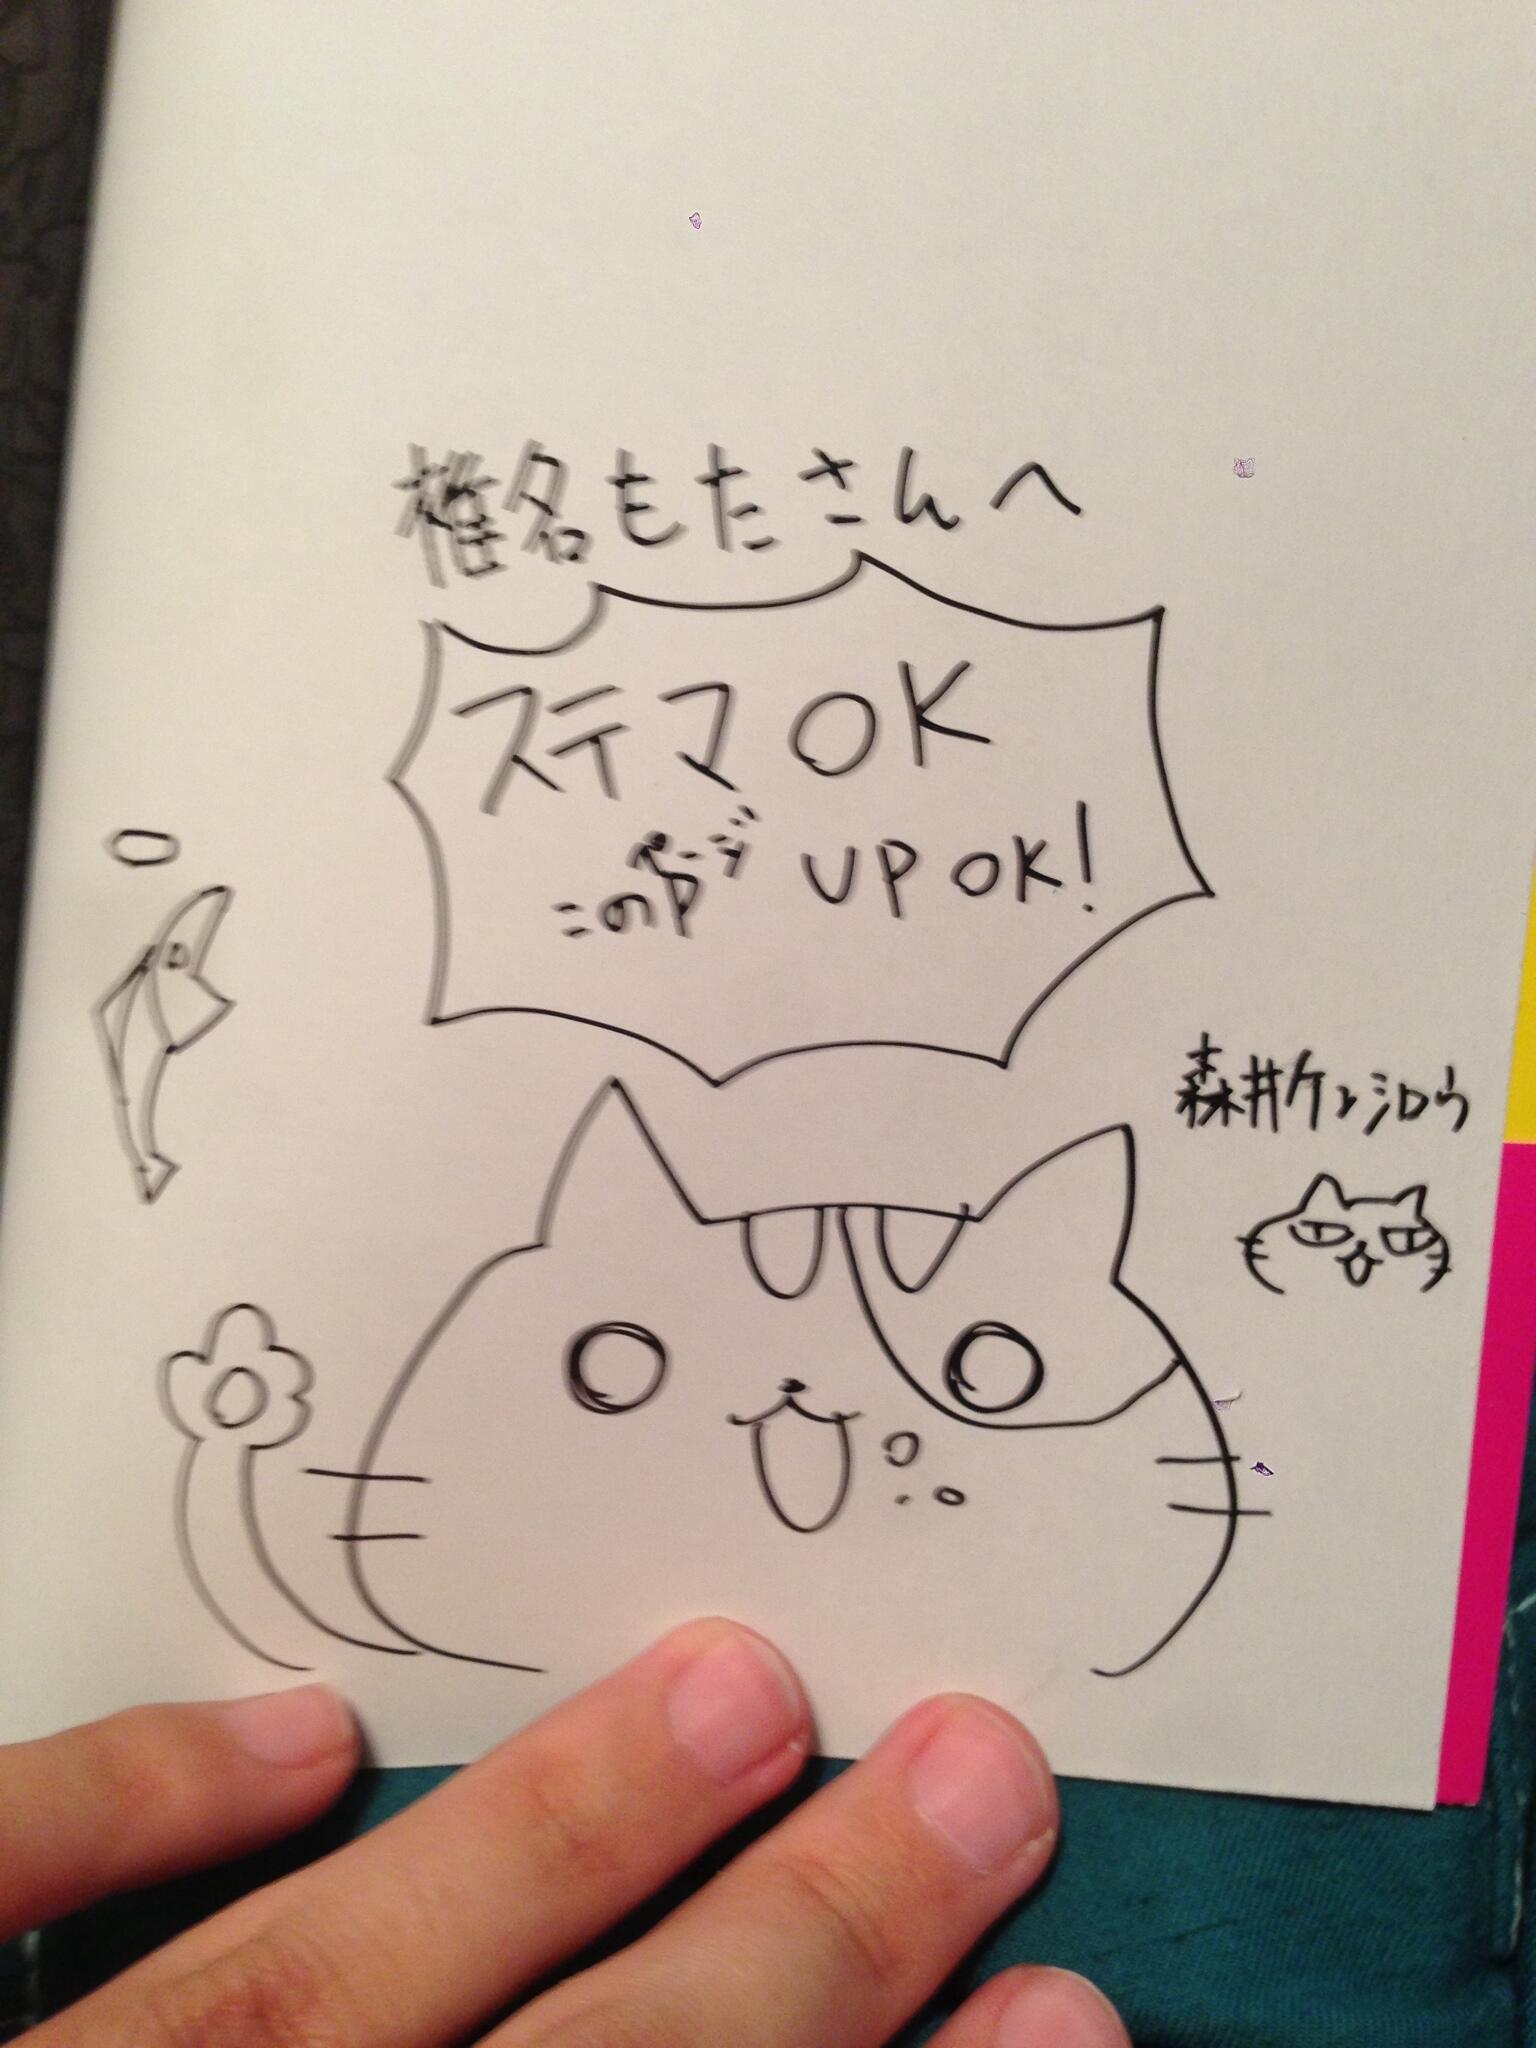 椎名もたさんへ
ステマOK
このページ UP OK!
森井ケンシロウ